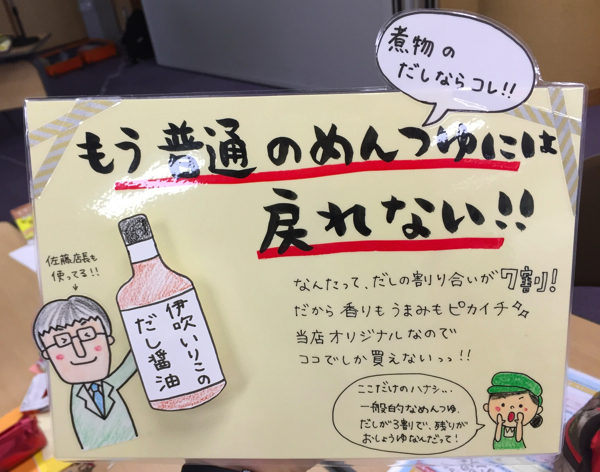 煮物の
だしならコレ!!
もう普通のめんつゆには
戻れない!!
佐藤店長も
使ってる!!
伊吹いりこの
だし醤油
なんたって、だしの割り合いが7割!
だから香りもうまみもピカイチ
当店オリジナルなので
ココでしか買えないっっ!!
ここだけのハナシ…
一般的なめんつゆ、
だしが3割で、残りが
おしょうゆなんだって!